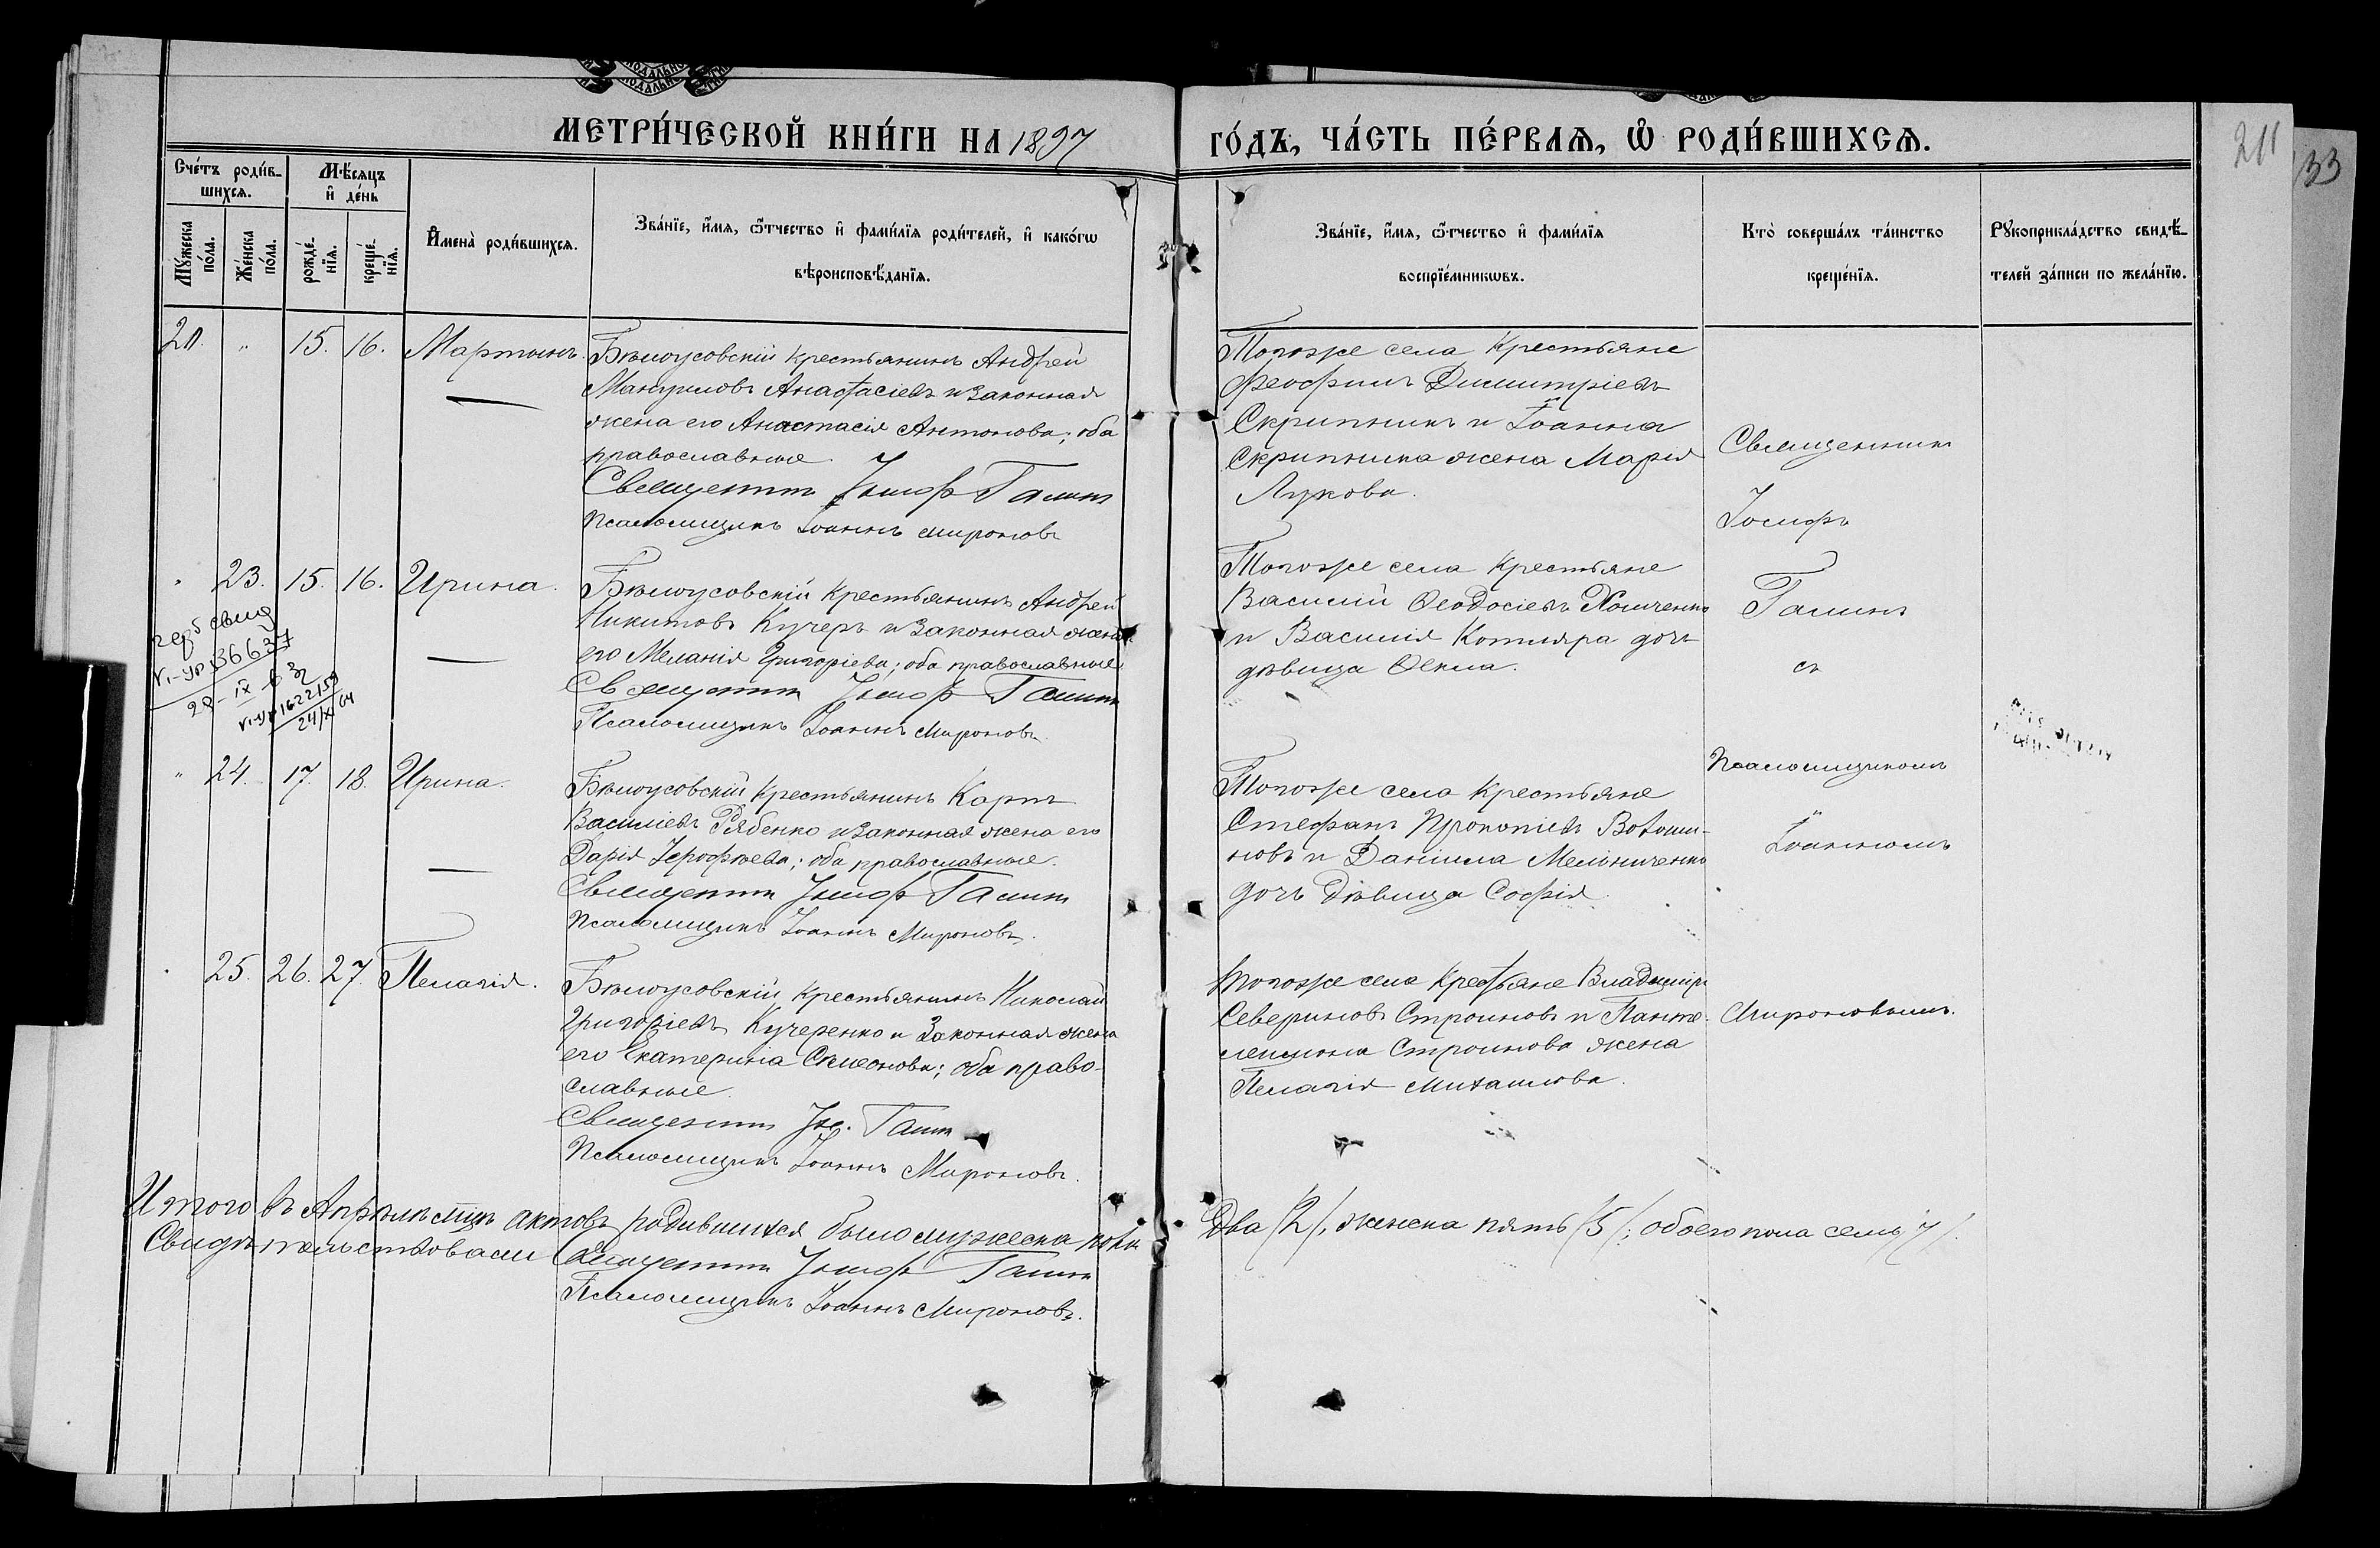 МЕТРИ́ЧЕСКОЙ КНИ́ГИ НА 1897
ГО́ДЪ, ЧА́СТЬ ПЕ́РВАѦ, Ѽ РОДИ́ВШИХСѦ.
211
33
Сче́тъ роди́в-
шихсѧ.
Мѣ́сѧцъ
и҆ де́нь
Мꙋ́жеска
по́ла.
Же́нска
по́ла.
рожде́-
нїѧ.
креще́-
нїѧ.
И҆мена̀ роди́вшихсѧ.
Зва́нїе, и҆́мѧ, ѻ҆́тчество и҆ фами́лїѧ роди́телей, и҆ како́гѡ
вѣроисповѣ́данїѧ.
Зва́нїе, и҆́мѧ, ѻ҆́тчество и҆ фами́лїѧ
воспрїе́мникѡвъ.
Кто̀ соверша́лъ та́инство
креще́нїѧ.
Рꙋкоприкла́дство свидѣ́-
телей за́писи по жела́нїю.
20. " 15. 16. Мартинъ.
Бѣлоусовскій крестьянинъ Андрей
Мануиловъ Анастасіевъ и законная
жена его Анастасія Антонова; оба
православные.
Священникъ Іосифъ Галинъ
Псаломщикъ Іоаннъ Мироновъ
Тогоже села крестьяне
Феофилъ Димитріевъ
Скрипникъ и Іоанна
Скрипника жена Марія
Лукова.
" 23. 15. 16. Ирина.
Бѣлоусовскій крестьянинъ Андрей
Никитовъ Кучеръ и законная жена
его Меланія Григоріева; оба православные.
Священникъ Іосифъ Галинъ
Псаломщикъ Іоаннъ Мироновъ.
Тогоже села крестьяне
Василій Ѳеодосіевъ
и Василія Котляра дочь
дѣвица Ѳекла.
свид
28-IX
24/X
" 24. 17. 18. Ирина.
Бѣлоусовскій крестьянинъ Карпъ
Василіевъ Рябенко и законная жена его
Дарія Іерофѣева; оба православные.
Священникъ Іосифъ Галинъ
Псаломщикъ Іоаннъ Мироновъ.
Тогоже села крестьяне
Стефанъ Прокопіевъ Волоши-
новъ и Даніила Мельниченко
дочь дѣвица Софія
" 25. 26. 27. Пелагія.
Бѣлоусовскій крестьянинъ Николай
Григоріевъ Кучеренко и законная жена
его Екатерина Симеонова; оба право-
славные.
Священникъ Іос. Галинъ
Псаломщикъ Іоаннъ Мироновъ.
Тогоже села крестьяне Владиміръ
Севериновъ Строиновъ и Панте-
леимона Строинова жена
Пелагія Михаилова.
Священникъ
Іосифъ
Галинъ
съ
Псаломщикомъ
Іоанномъ
Мироновымъ.
Итого въ Апрѣлѣ мцѣ актовъ родившихся было мужеска пола
Два /2/, женска пять /5/; обоего пола семь /7/.
Свидѣтельствовали Священникъ Іосифъ Галинъ
Псаломщикъ Іоаннъ Мироновъ.